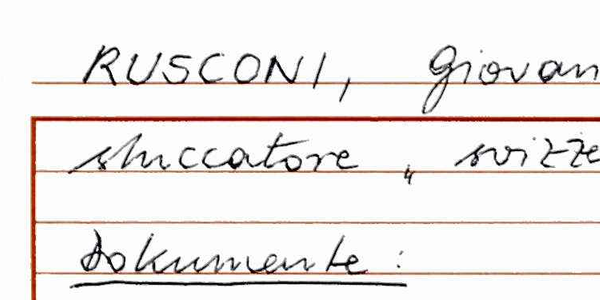 RUSCONI, Giovan
stuccatore „ svizze
Dokumente: